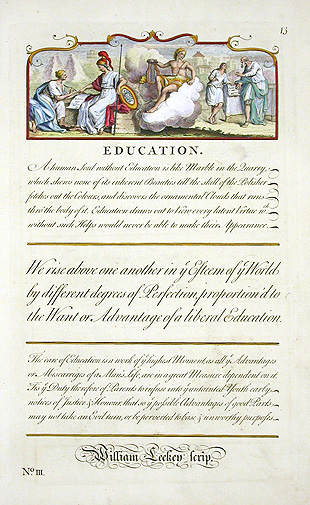 13
EDUCATION.
A human Soul without Education is like Marble in the Quarry,
which shews none of its inherent Beauties till the skill of the Polisher
fetches out the Colours, and discovers the ornamental Clouds that runs
thro' the body of it. Education draws out to View every latent Virtue wch.
without such Helps would never be able to make their Appearance.
We rise above one another in ye Esteem of ye World
by different degrees of Perfection, proportion'd to
the Want or Advantage of a liberal Education.
The care of Education is a work of ye highest Moment, as all ye Advantages
or Miscarriages of a Man's Life, are in a great Measure dependent on it.
Tis ye Duty therefore of Parents to infuse into ye untainted Youth early
notices of Justice & Honour, that so ye possible Advantages of good Parts
may not take an Evil turn, or be perverted to base & unworthy purposes.
William Leekey scrip.
No. III.